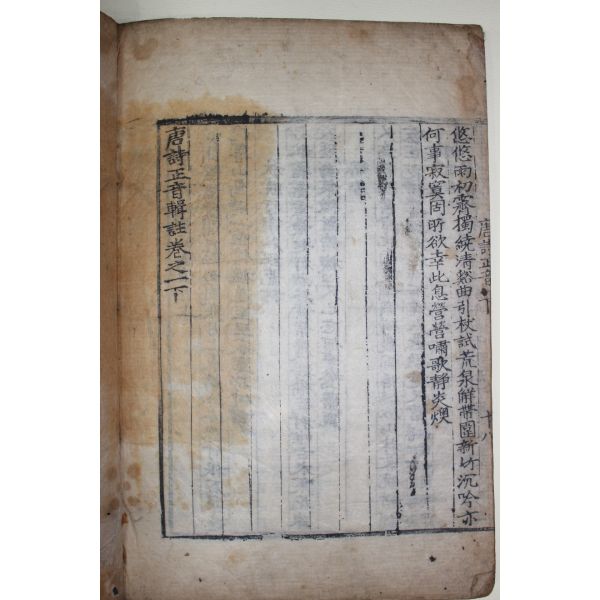 悠悠雨初霽獨繞清谿曲引杖試荒泉解帶圍新竹沉吟亦
何事寂寞固所欲幸此息營營嘯歌靜炎燠
唐詩正音輯註卷之一下
唐詩正音 下
十八